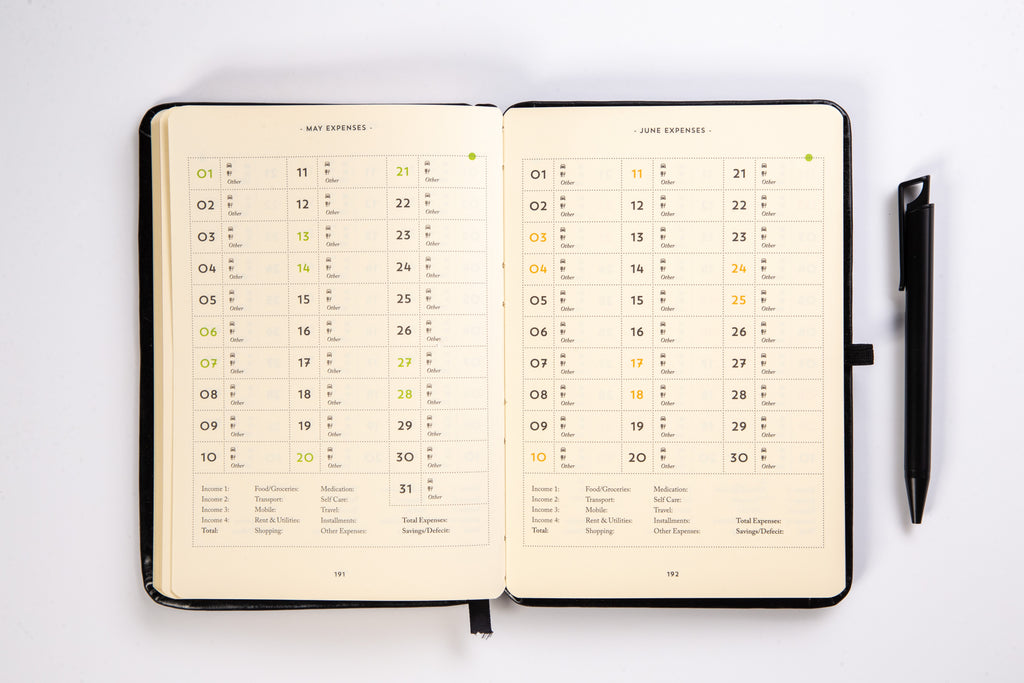 - MAY EXPENSES -
01 Other 11 Other 21 Other
02 Other 12 Other 22 Other
03 Other 13 Other 23 Other
04 Other 14 Other 24 Other
05 Other 15 Other 25 Other
06 Other 16 Other 26 Other
07 Other 17 Other 27 Other
08 Other 18 Other 28 Other
09 Other 19 Other 29 Other
10 Other 20 Other 30 Other
31 Other
Income 1: Food/Groceries: Medication:
Income 2: Transport: Self Care:
Income 3: Mobile: Travel:
Income 4: Rent & Utilities: Installments: Total Expenses:
Total: Shopping: Other Expenses: Savings/Defecit:
191
- JUNE EXPENSES -
01 Other 11 Other 21 Other
02 Other 12 Other 22 Other
03 Other 13 Other 23 Other
04 Other 14 Other 24 Other
05 Other 15 Other 25 Other
06 Other 16 Other 26 Other
07 Other 17 Other 27 Other
08 Other 18 Other 28 Other
09 Other 19 Other 29 Other
10 Other 20 Other 30 Other
Income 1: Food/Groceries: Medication:
Income 2: Transport: Self Care:
Income 3: Mobile: Travel:
Income 4: Rent & Utilities: Installments: Total Expenses:
Total: Shopping: Other Expenses: Savings/Defecit:
192